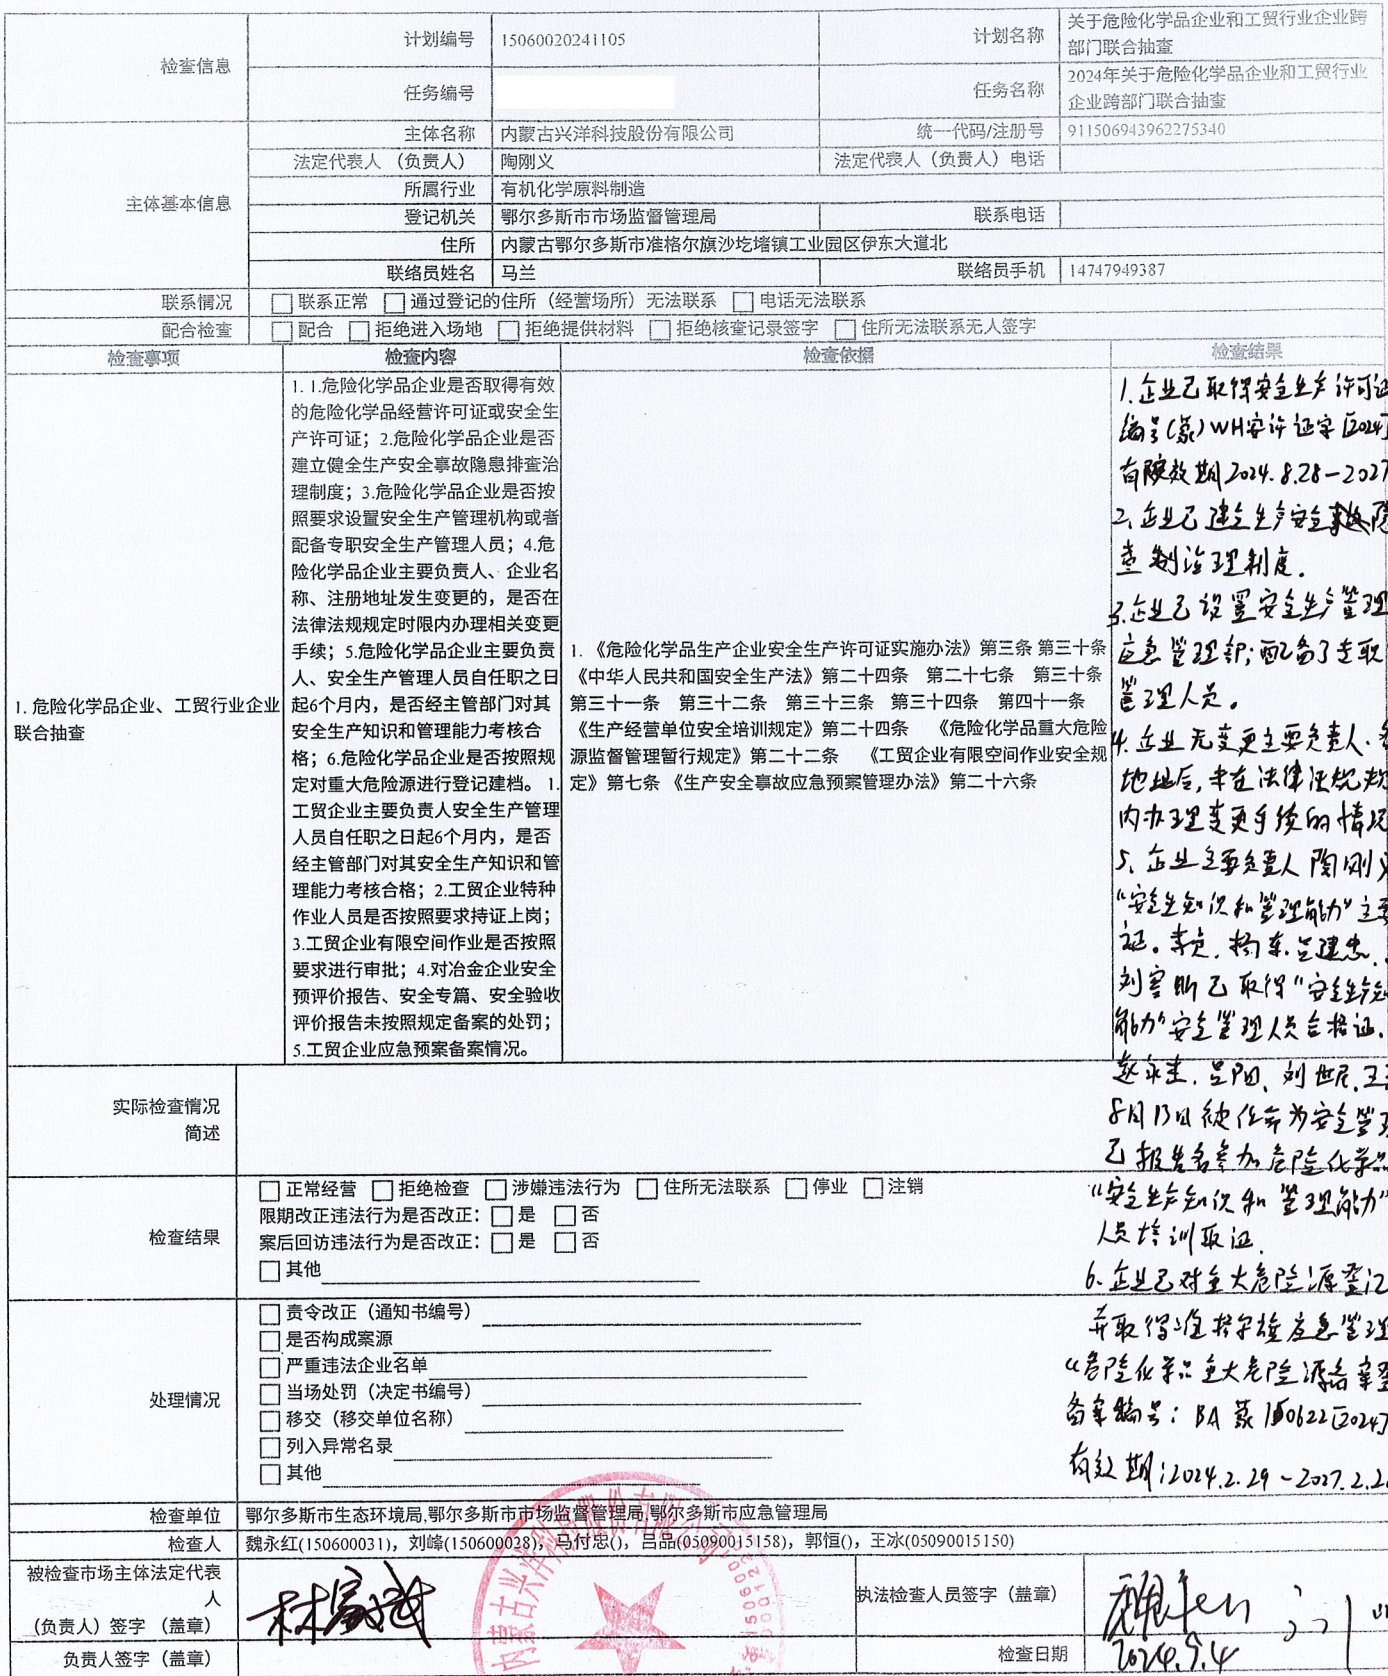 检查信息
计划编号 15060020241105 计划名称 关于危险化学品企业和工贸行业企业跨
部门联合抽查
任务编号 任务名称 2024年关于危险化学品企业和工贸行业
企业跨部门联合抽查
主体基本信息
主体名称 内蒙古兴洋科技股份有限公司 统一代码/注册号 911506943962275340
法定代表人（负责人） 陶刚义 法定代表人（负责人）电话
所属行业 有机化学原料制造
登记机关 鄂尔多斯市市场监督管理局 联系电话
住所 内蒙古鄂尔多斯市准格尔旗沙圪堵镇工业园区伊东大道北
联络员姓名 马兰 联络员手机 14747949387
联系情况 □联系正常 □通过登记的住所（经营场所）无法联系 □电话无法联系
配合检查 □配合 □拒绝进入场地 □拒绝提供材料 □拒绝核查记录签字 □住所无法联系无人签字
检查事项 检查内容 检查依据 检查结果
1. 危险化学品企业、工贸行业企业
联合抽查
1. 1.危险化学品企业是否取得有效
的危险化学品经营许可证或安全生
产许可证；2.危险化学品企业是否
建立健全生产安全事故隐患排查治
理制度；3.危险化学品企业是否按
照要求设置安全生产管理机构或者
配备专职安全生产管理人员；4.危
险化学品企业主要负责人、企业名
称、注册地址发生变更的，是否在
法律法规规定时限内办理相关变更
手续；5.危险化学品企业主要负责
人、安全生产管理人员自任职之日
起6个月内，是否经主管部门对其
安全生产知识和管理能力考核合
格；6.危险化学品企业是否按照规
定对重大危险源进行登记建档。 1.
工贸企业主要负责人安全生产管理
人员自任职之日起6个月内，是否
经主管部门对其安全生产知识和管
理能力考核合格；2.工贸企业特种
作业人员是否按照要求持证上岗；
3.工贸企业有限空间作业是否按照
要求进行审批；4.对冶金企业安全
预评价报告、安全专篇、安全验收
评价报告未按照规定备案的处罚；
5.工贸企业应急预案备案情况。
1. 《危险化学品生产企业安全生产许可证实施办法》第三条 第三十条
《中华人民共和国安全生产法》第二十四条 第二十七条 第三十条
第三十一条 第三十二条 第三十三条 第三十四条 第四十一条
《生产经营单位安全培训规定》第二十四条 《危险化学品重大危险
源监督管理暂行规定》第二十二条 《工贸企业有限空间作业安全规
定》第七条 《生产安全事故应急预案管理办法》第二十六条
1.企业已取得安全生产许可证
编号(蒙)WH安许证字[2024]
有效期2024.8.28-2027
2、企业已建立生产安全事故隐
查治理制度.
3.企业已设置安全生产管理
应急管理部;配备了专职
管理人员。
4.企业无变更主要负责人、
地址后,未在法律法规规
内办理变更手续的情况
5、企业主要负责人陶刚义
"安全生知识和管理能力"主要
证。 杨东、吕建忠、
已取得"安全生产知
能力"安全管理人员合格证.
赵 吕阳、刘世民、王
8月13日被任命为安全管理
已报名参加危险化学品
"安全生产知识和管理能力"
人员培训取证.
6.企业已对重大危险源登记
并取得准格尔旗应急管理
"危险化学品重大危险源备案登
备案编号:BA蒙150622[2024]
有效期:2024.2.29-2027.2.2
实际检查情况
简述
检查结果
□正常经营 □拒绝检查 □涉嫌违法行为 □住所无法联系 □停业 □注销
限期改正违法行为是否改正：□是 □否
案后回访违法行为是否改正：□是 □否
□其他
处理情况
□责令改正（通知书编号）
□是否构成案源
□严重违法企业名单
□当场处罚（决定书编号）
□移交（移交单位名称）
□列入异常名录
□其他
检查单位 鄂尔多斯市生态环境局,鄂尔多斯市市场监督管理局,鄂尔多斯市应急管理局
检查人 魏永红(150600031)，刘峰(150600028)，马付忠()，吕品(05090015158)，郭恒()，王冰(05090015150)
被检查市场主体法定代表
人
（负责人）签字 （盖章）
执法检查人员签字（盖章）
负责人签字（盖章） 检查日期 2024.9.4
内蒙古兴洋科技股份有限公司